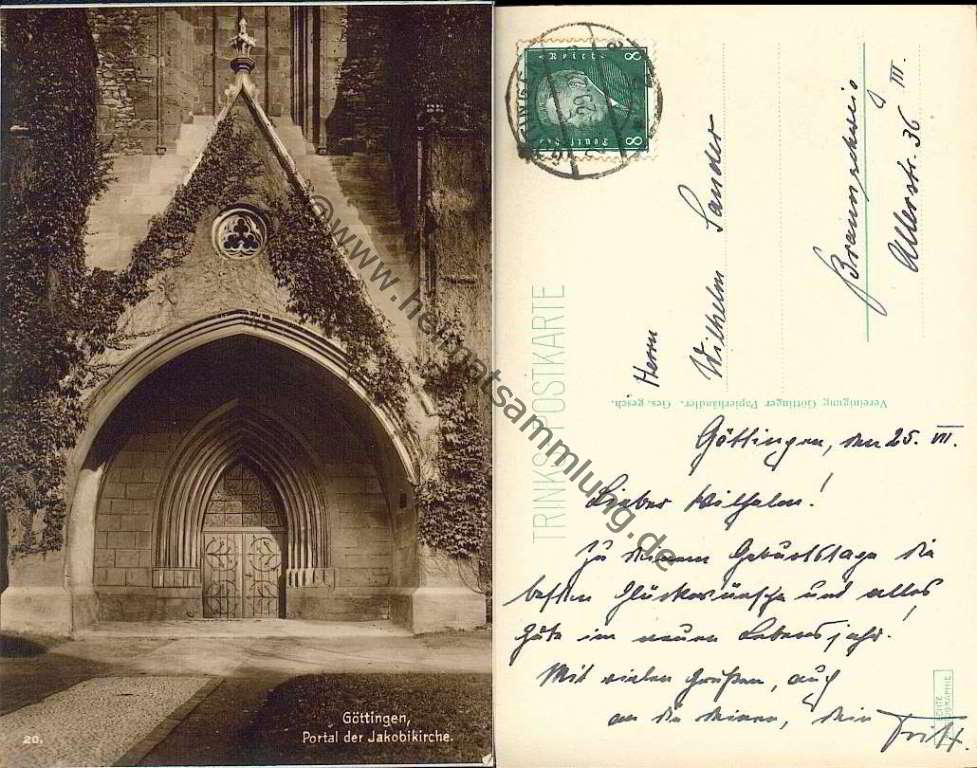 20.
Göttingen,
Portal der Jakobikirche.
www.heimatsammlung.de
8 8
Deutsches Reich
TRINKS-POSTKARTE
Herrn
Wilhelm Sander
Braunschweig
Allerstr. 36 III.
Vereinigung Göttinger Papierhändler. Ges. gesch.
Göttingen, den 25. VII.
Lieber Wilhelm!
Zu deinem Geburtstage die
besten Glückwünsche und alles
Gute im neuen Lebensjahr!
Mit vielen Grüßen, auch
an die deinen, dein
Fritz.
ECHTE
PHOTOGRAPHIE